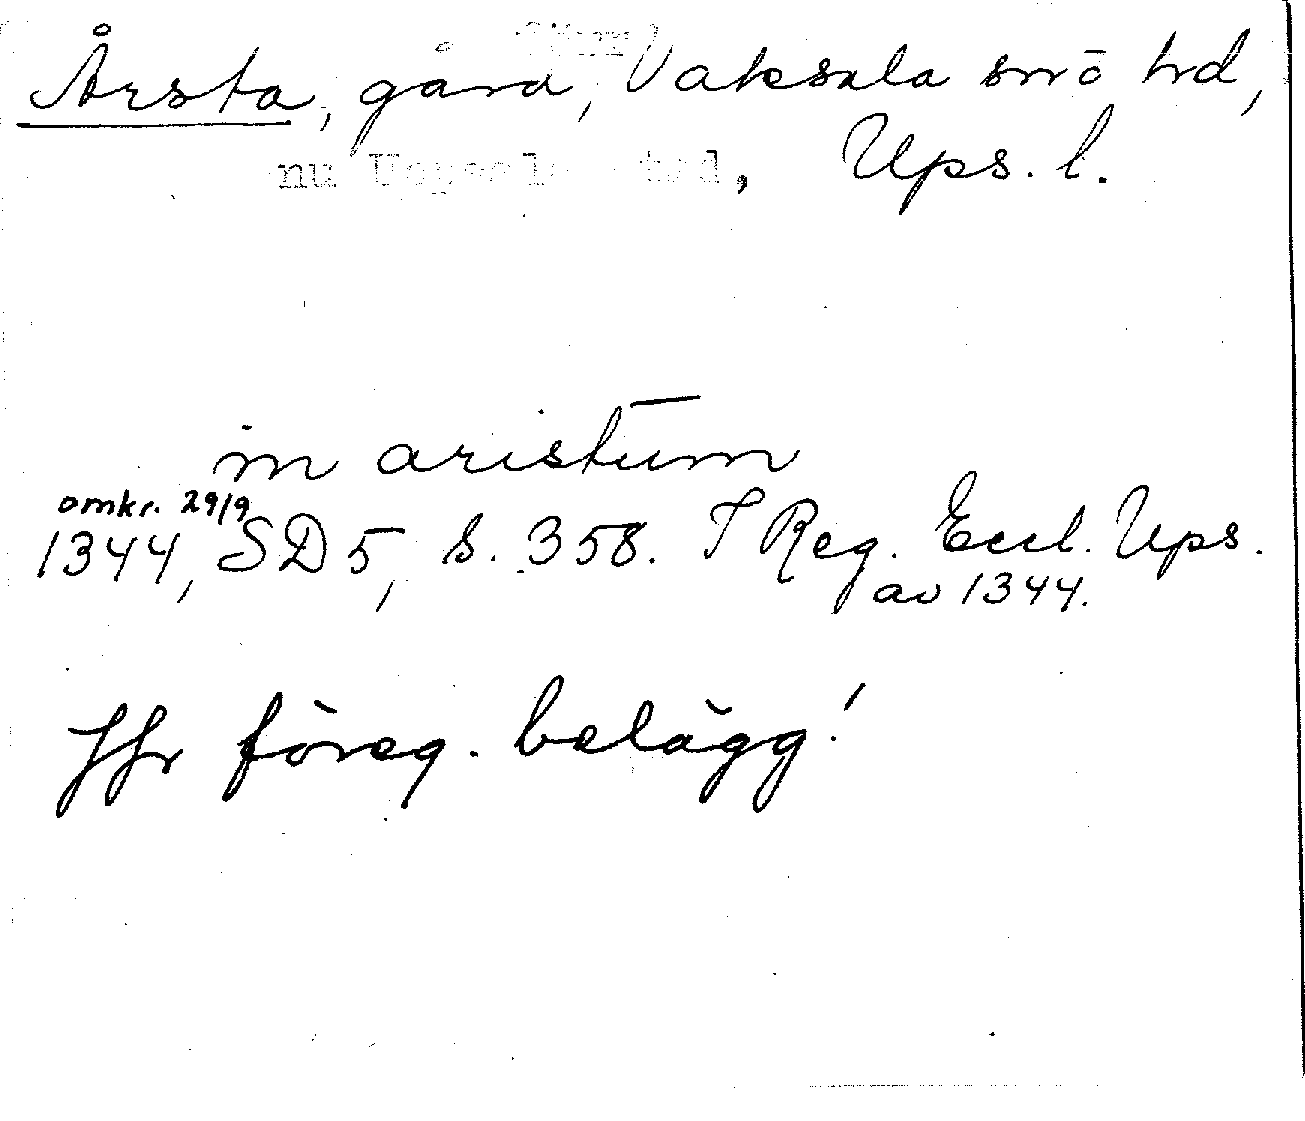 Årsta, gård, Vaksala sn o hd,
nu Uppsala stad, Ups. l.
in aristum
omkr. 29/9
1344, SD 5, s. 358. I Reg. Eccl. Ups.
av 1344.
Jfr föreg. belägg!